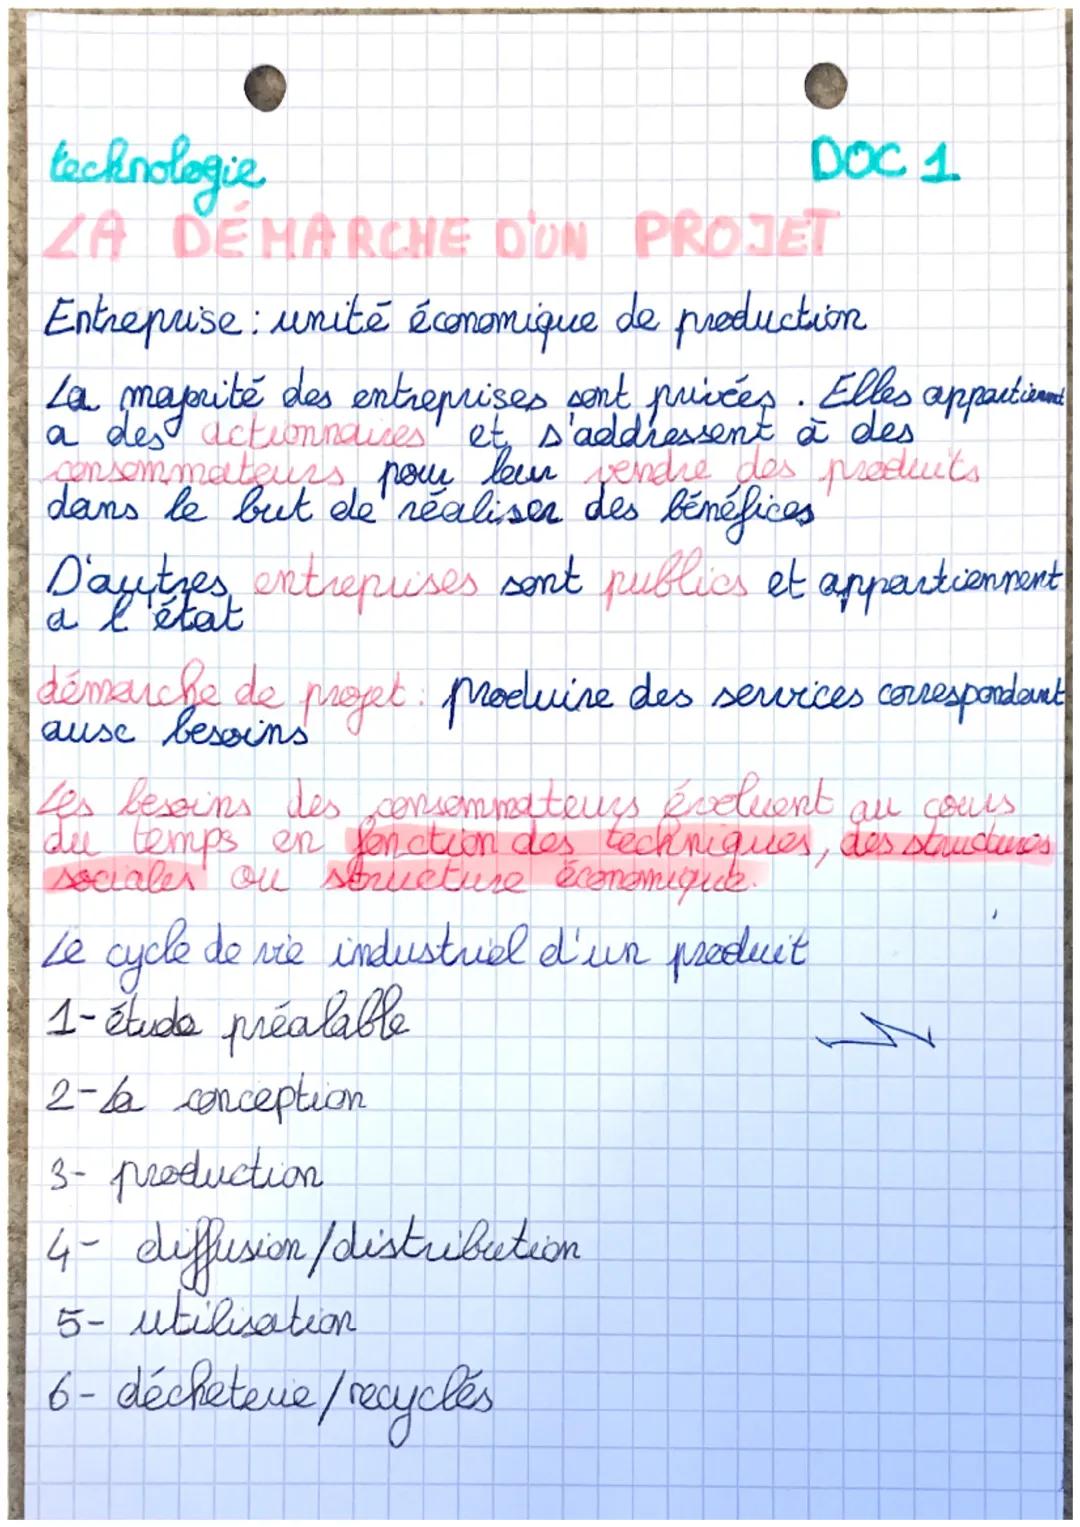 technologie
DOC 1
LA DÉMARCHE D'UN PROJET
Entreprise : unité économique de production
La majorité des entreprises sont privées. Elles appartiennent
a des actionnaires et s'addressent à des
consommateurs pour leur vendre des produits
dans le but de réaliser des bénéfices
D'autres entreprises sont publics et appartiennent
a l'état
démarche de projet : produire des services correspondant
aux besoins
Les besoins des consommateurs évoluent au cours
du temps en fonction des techniques, des structures
sociales ou structure économique.
Le cycle de vie industriel d'un produit
1- étude préalable
2- la conception
3- production
4- diffusion/distribution
5- utilisation
6- décheterie/recyclés